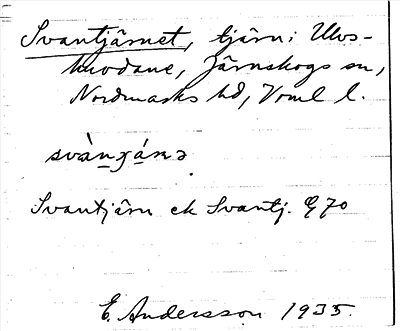 Svantjärnet, tjärn; Ulvs-
kuodane, Järnskogs sn,
Nordmarks hd, Vrml l.
svàn̲χá̲nə
Svantjärn ek Svantj. G70
E. Andersson 1935.